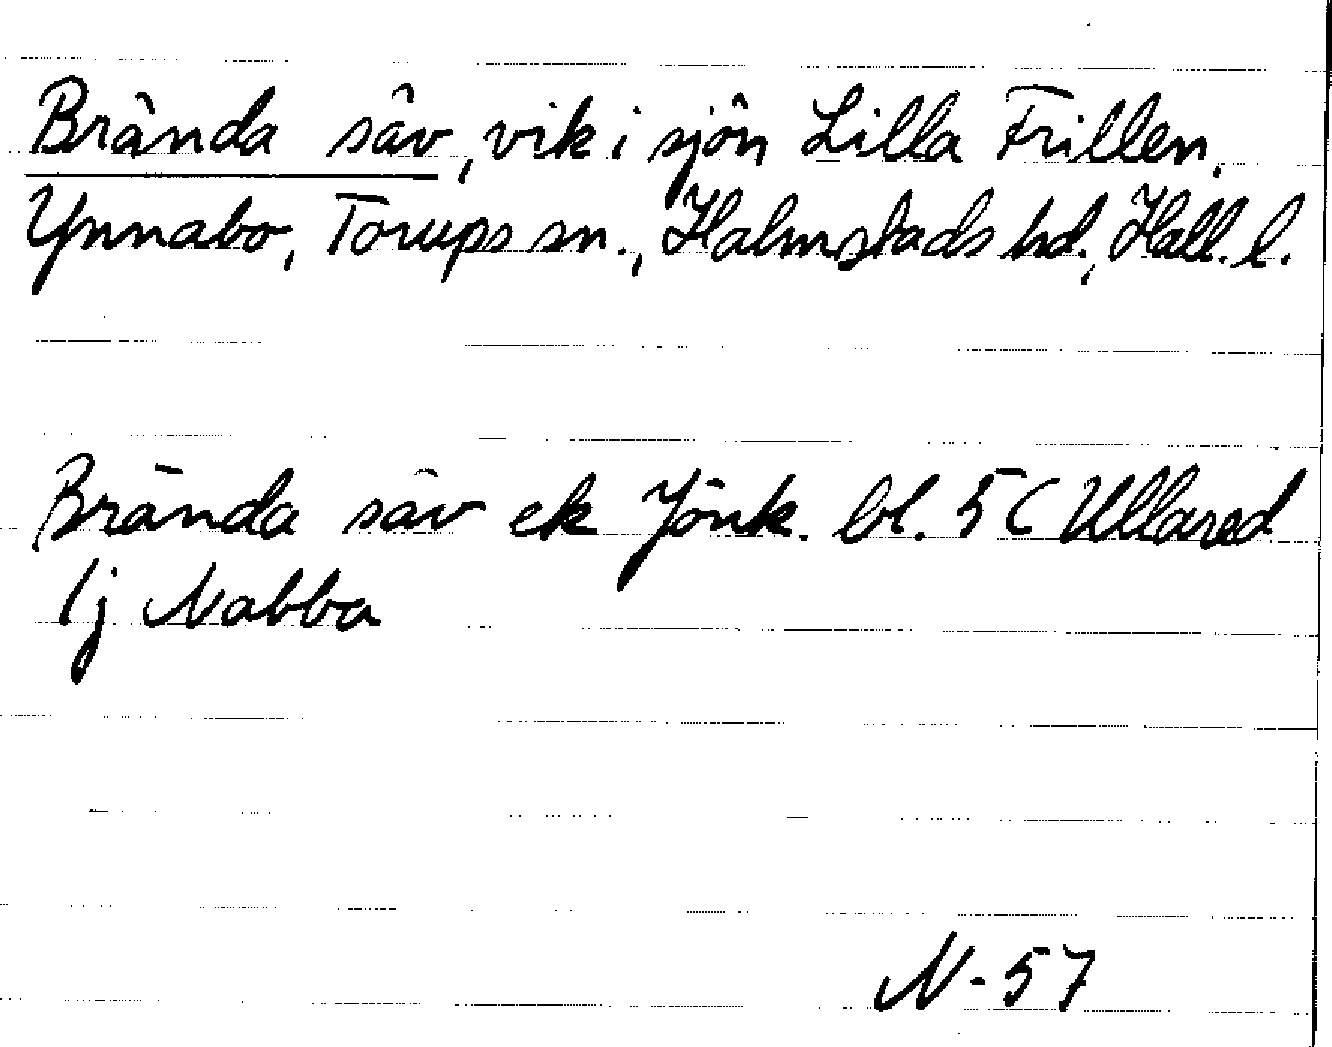 Brända säv, vik i sjön Lilla Frillen,
Ynnabo, Torups sn., Halmstads hd., Hall. l.
Brända säv ek Jönk. bl. 5 C Ullared
1j Nabba
N-57